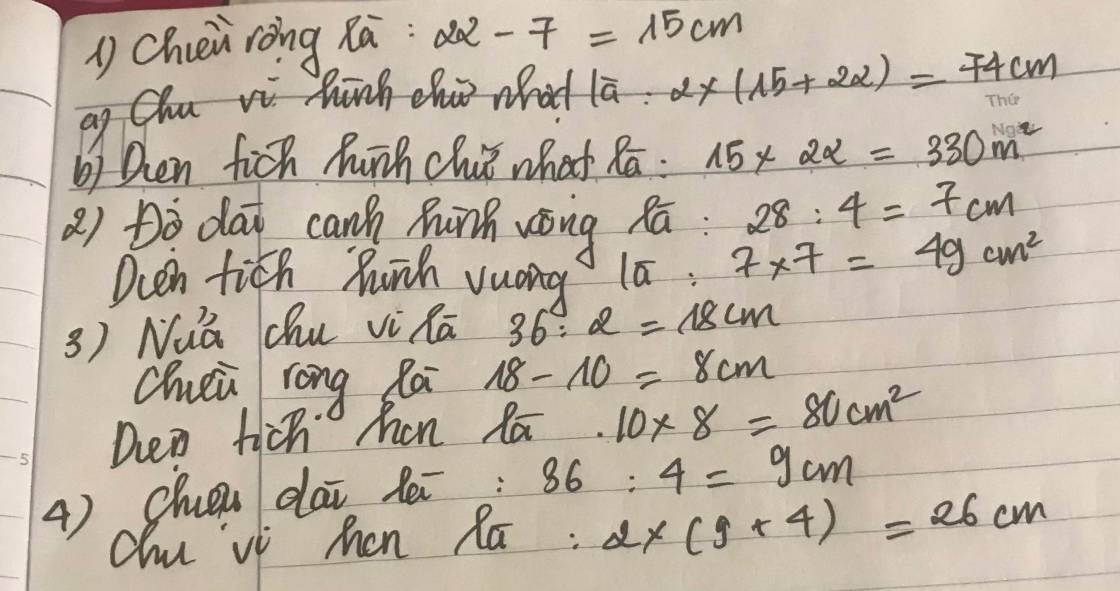 1) Chiều rộng là : 22 - 7 = 15 cm
a) Chu vi hình chữ nhật là : 2 × (15 + 22) = 74 cm
Thứ
Ngày
b) Diện tích hình chữ nhật là : 15 × 22 = 330 m²
2) Độ dài cạnh hình vông là : 28 : 4 = 7 cm
Diện tích hình vuông là : 7 × 7 = 49 cm²
3) Nửa chu vi là 36 : 2 = 18 cm
Chiều rộng là 18 - 10 = 8 cm
Diện tích hcn là . 10 × 8 = 80 cm²
5
4) Chiều dài là : 36 : 4 = 9 cm
Chu vi hcn là : 2 × (9 + 4) = 26 cm